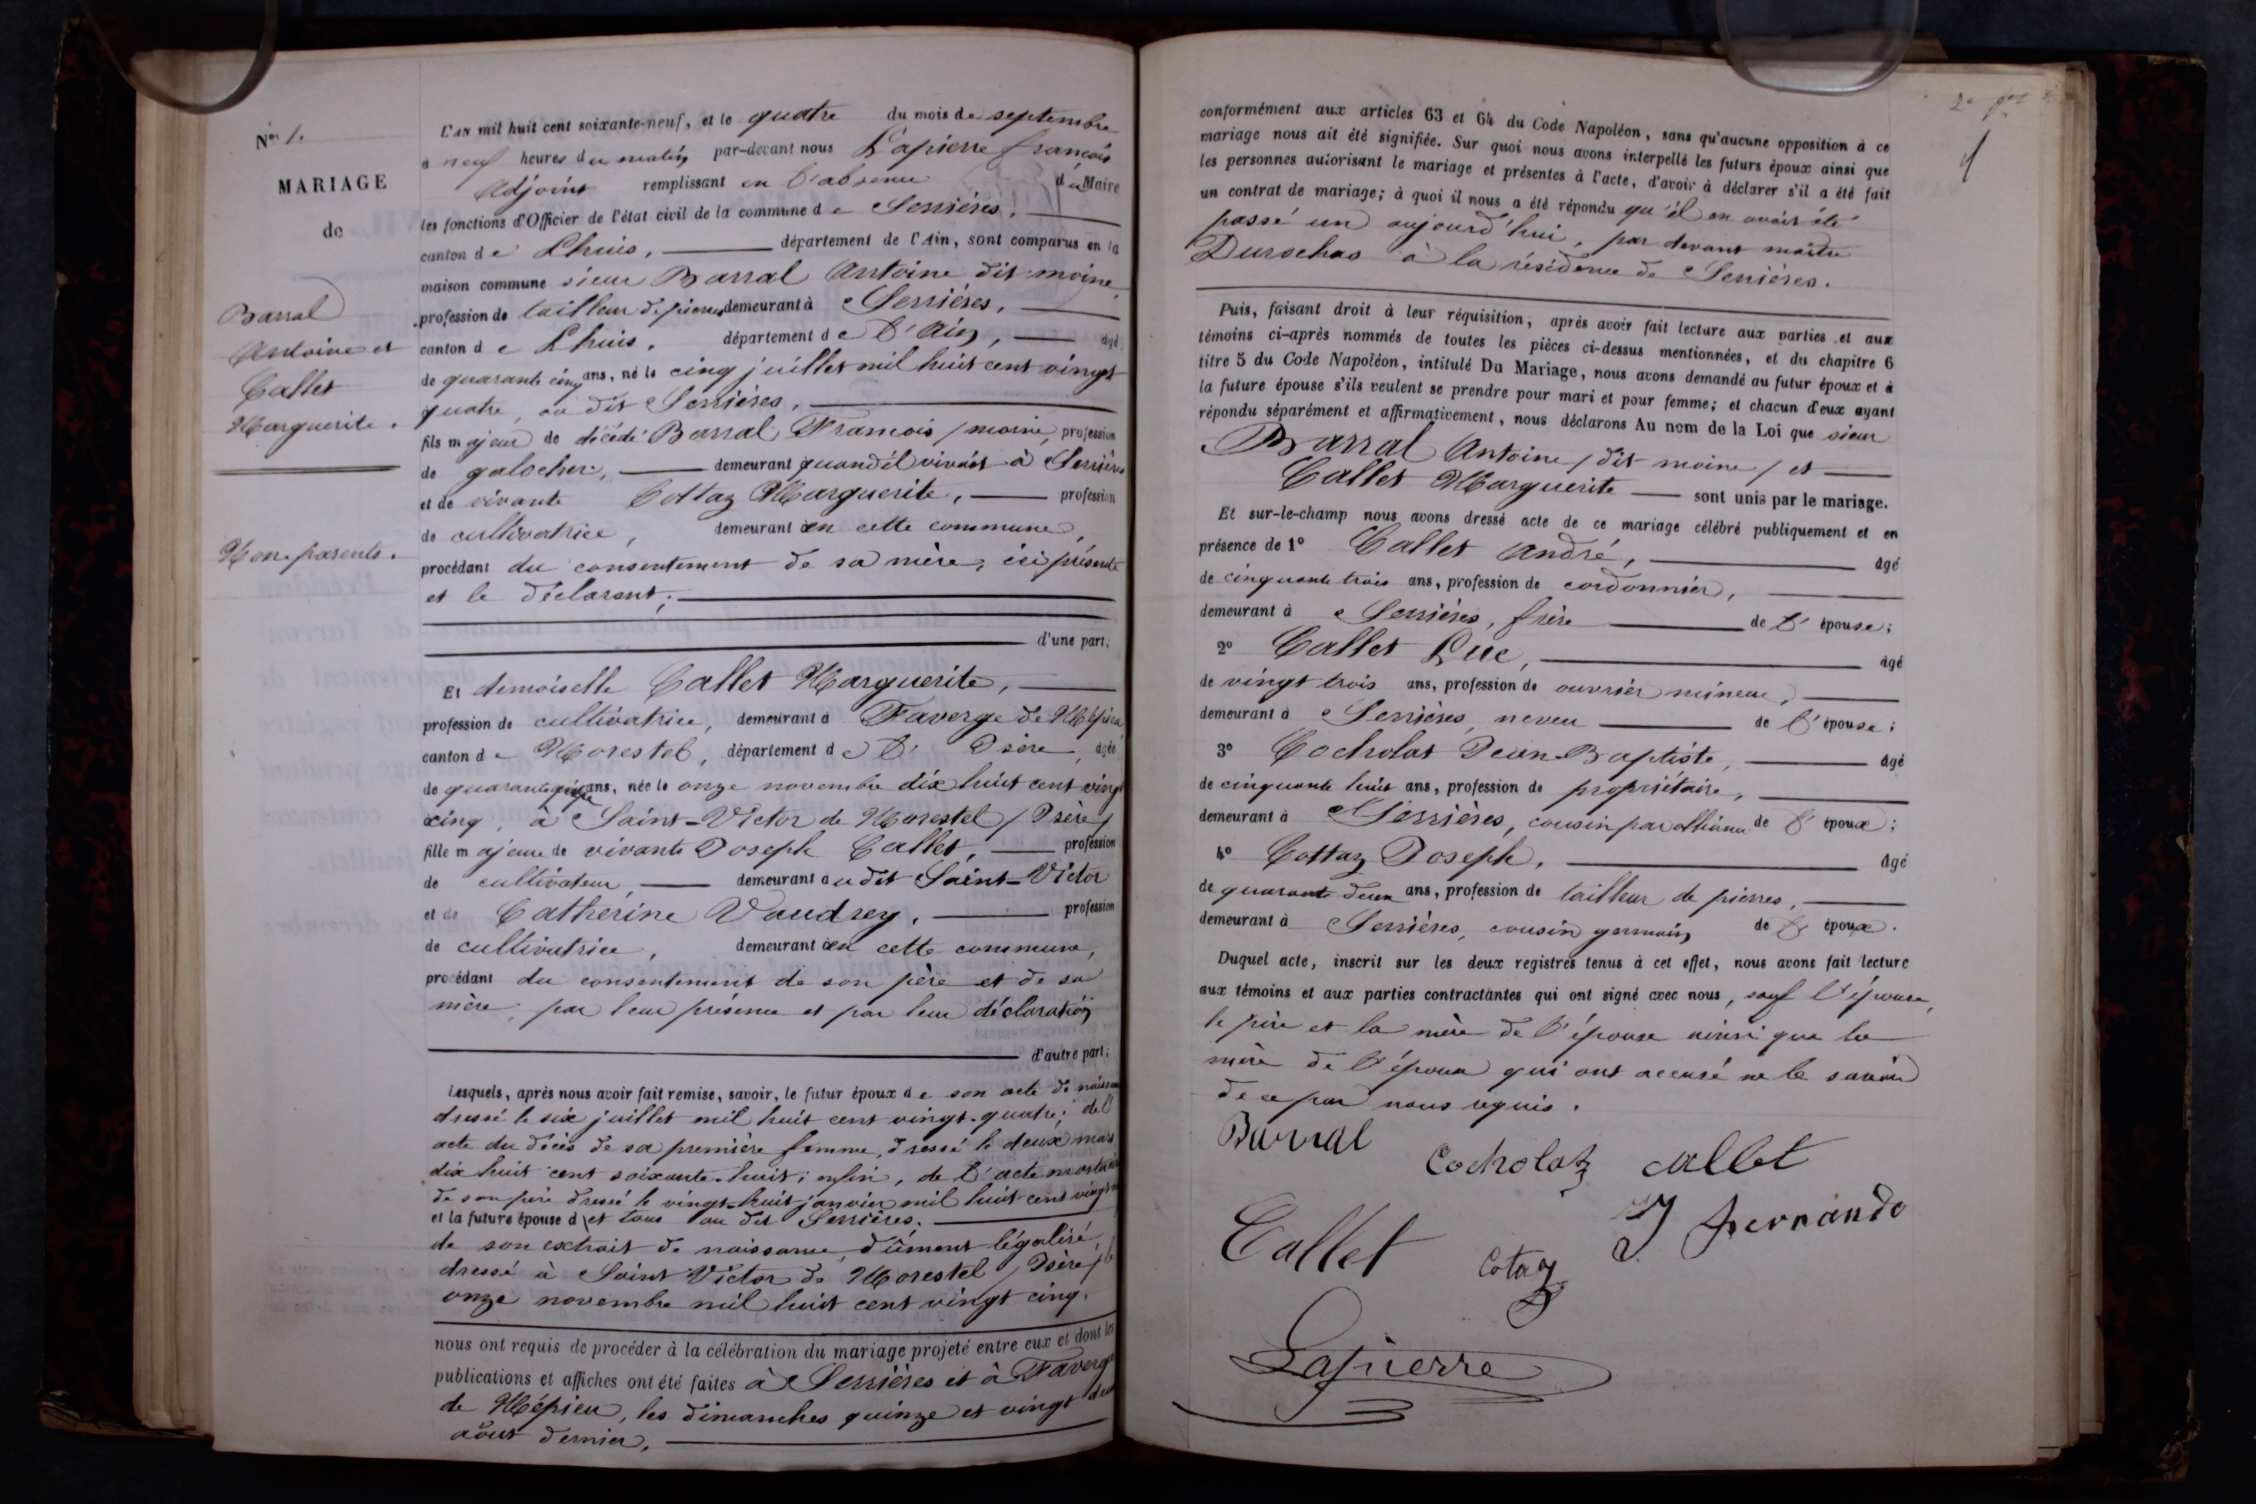 Nos 1.
MARIAGE
de
Barral
Antoine et
Callet
Marguerite.
Non parents.
L'AN mil huit cent soixante-neuf, et le quatre du mois de septembre
à neuf heures du matin par-devant nous Lapierre françois
Adjoint remplissant en l'absence du Maire
les fonctions d'Officier de l'état civil de la commune de Serrières.
canton de Lhuis, département de l'Ain, sont comparus en la
maison commune sieur Barral Antoine dit moine,
profession de tailleur de pierres demeurant à Serrières,
canton de Lhuis. département de l'Ain, âgé
de quarante cinq ans, né le cinq juillet mil huit cent vingt
quatre, au dit Serrières,
fils majeur de décédé Barral François / moine, profession
de galocher, demeurant quand il vivait à Serrières
et de vivante Cottaz Marguerite, profession
de cultivatrice, demeurant en cette commune,
procédant du consentement de sa mère, ici présente
et le déclarant;
d'une part;
Et demoiselle Callet Marguerite,
profession de cultivatrice, demeurant à Faverge de Mépieu
canton de Morestel, département de l'Isère, âgée
de quarante ans, née le onze novembre dix huit cent vingt
cinq, à Saint-Victor de Morestel / Isère /
fille majeure de vivants Joseph Callet, profession
de cultivateur, demeurant au dit Saint-Victor
et de Catherine Vaudrey, profession
de cultivatrice, demeurant en cette commune,
procédant du consentement de son père et de sa
mère, par leur présence et par leur déclaration
d'autre part;
Lesquels, après nous avoir fait remise, savoir, le futur époux de son acte de naissance
dressé le six juillet mil huit cent vingt-quatre; de l'
acte du décès de sa première femme, dressé le deux mars
dix huit cent soixante-huit; enfin, de l'acte mortuaire
de son père dressé le vingt-huit janvier mil huit cent vingt
et la future épouse d et tous au dit Serrières.
de son extrait de naissance, dûment légalisé,
dressé à Saint Victor de Morestel / Isère / le
onze novembre mil huit cent vingt cinq.
nous ont requis de procéder à la célébration du mariage projeté entre eux et dont les
publications et affiches ont été faites à Serrières et à Faverge
de Mépieu, les dimanches quinze et vingt deux
août dernier.
conformément aux articles 63 et 64 du Code Napoléon, sans qu'aucune opposition à ce
mariage nous ait été signifiée. Sur quoi nous avons interpellé les futurs époux ainsi que
les personnes autorisant le mariage et présentes à l'acte, d'avoir à déclarer s'il a été fait
un contrat de mariage; à quoi il nous a été répondu qu'il en avait été
passé un aujourd'hui, par devant maître
Durochas à la résidence de Serrières.
Puis, faisant droit à leur réquisition, après avoir fait lecture aux parties et aux
témoins ci-après nommés de toutes les pièces ci-dessus mentionnées, et du chapitre 6
titre 5 du Code Napoléon, intitulé Du Mariage, nous avons demandé au futur époux et à
la future épouse s'ils veulent se prendre pour mari et pour femme; et chacun d'eux ayant
répondu séparément et affirmativement, nous déclarons Au nom de la Loi que sieur
Barral Antoine / dit moine / et
Callet Marguerite sont unis par le mariage.
Et sur-le-champ nous avons dressé acte de ce mariage célébré publiquement et en
présence de 1º Callet André, âgé
de cinquante trois ans, profession de cordonnier,
demeurant à Serrières, frère de l'épouse;
2º Callet Luc, âgé
de vingt trois ans, profession de ouvrier mineur,
demeurant à Serrières, neveu de l'épouse;
3º Cocholat Jean-Baptiste, âgé
de cinquante huit ans, profession de propriétaire,
demeurant à Serrières, cousin par alliance de l'époux;
4º Cottaz Joseph, âgé
de quarante deux ans, profession de tailleur de pierres,
demeurant à Serrières, cousin germain de l'époux.
Duquel acte, inscrit sur les deux registres tenus à cet effet, nous avons fait lecture
aux témoins et aux parties contractantes qui ont signé avec nous, sauf l'épouse,
le père et la mère de l'épouse ainsi que la
mère de l'époux qui ont accusé ne le savoir
de ce par nous requis.
Barral Cocholatz callet
Callet Cotaz J fernando
Lapierre